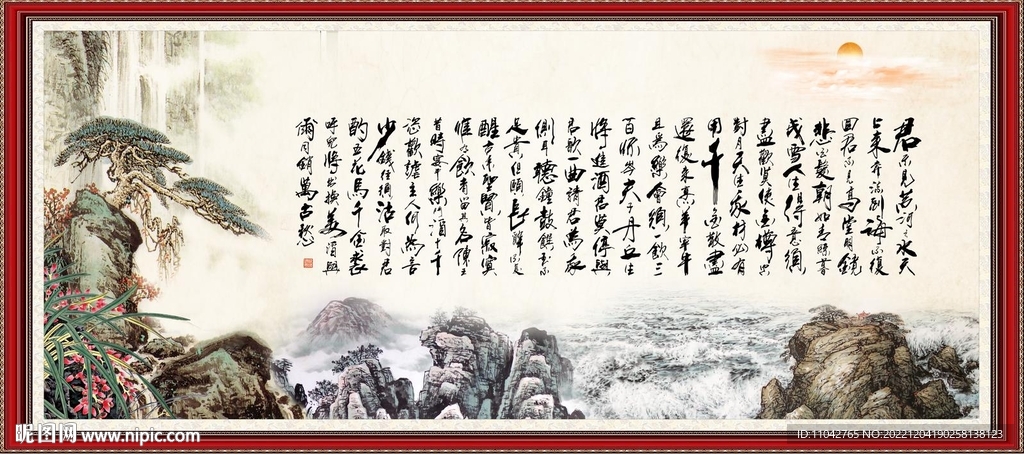 君不見黃河之水天
上來奔流到海不復
回君不見高堂明鏡
悲白髮朝如青絲暮
成雪人生得意須
盡歡莫使金樽空
對月天生我材必有
用千金散盡
還復來烹羊宰牛
且為樂會須一飲三
百杯岑夫子丹丘生
將進酒君莫停與
君歌一曲請君為我
側耳聽鐘鼓饌玉不
足貴但願長醉不復
醒古來聖賢皆寂寞
惟有飲者留其名陳王
昔時宴平樂斗酒十千
恣歡謔主人何為言
少錢徑須沽取對君
酌五花馬千金裘
呼兒將出換美酒與
爾同銷萬古愁
昵图网 www.nipic.com
ID:11042765 NO:20221204190258138123